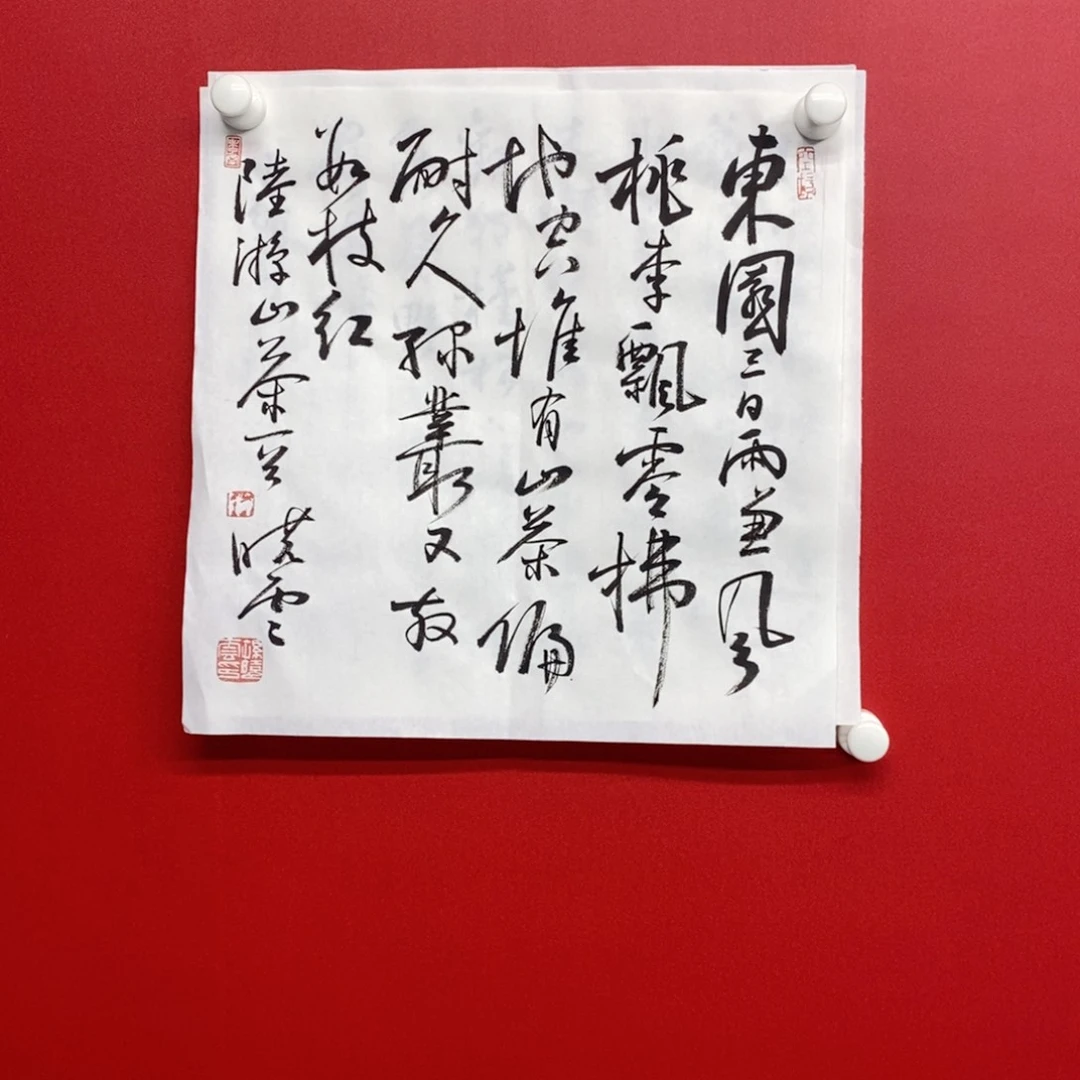 東園三日雨兼風
桃李飄零掃
地空惟有山茶偏
耐久綠叢又放
數枝紅
陸游山茶一首 曉雲